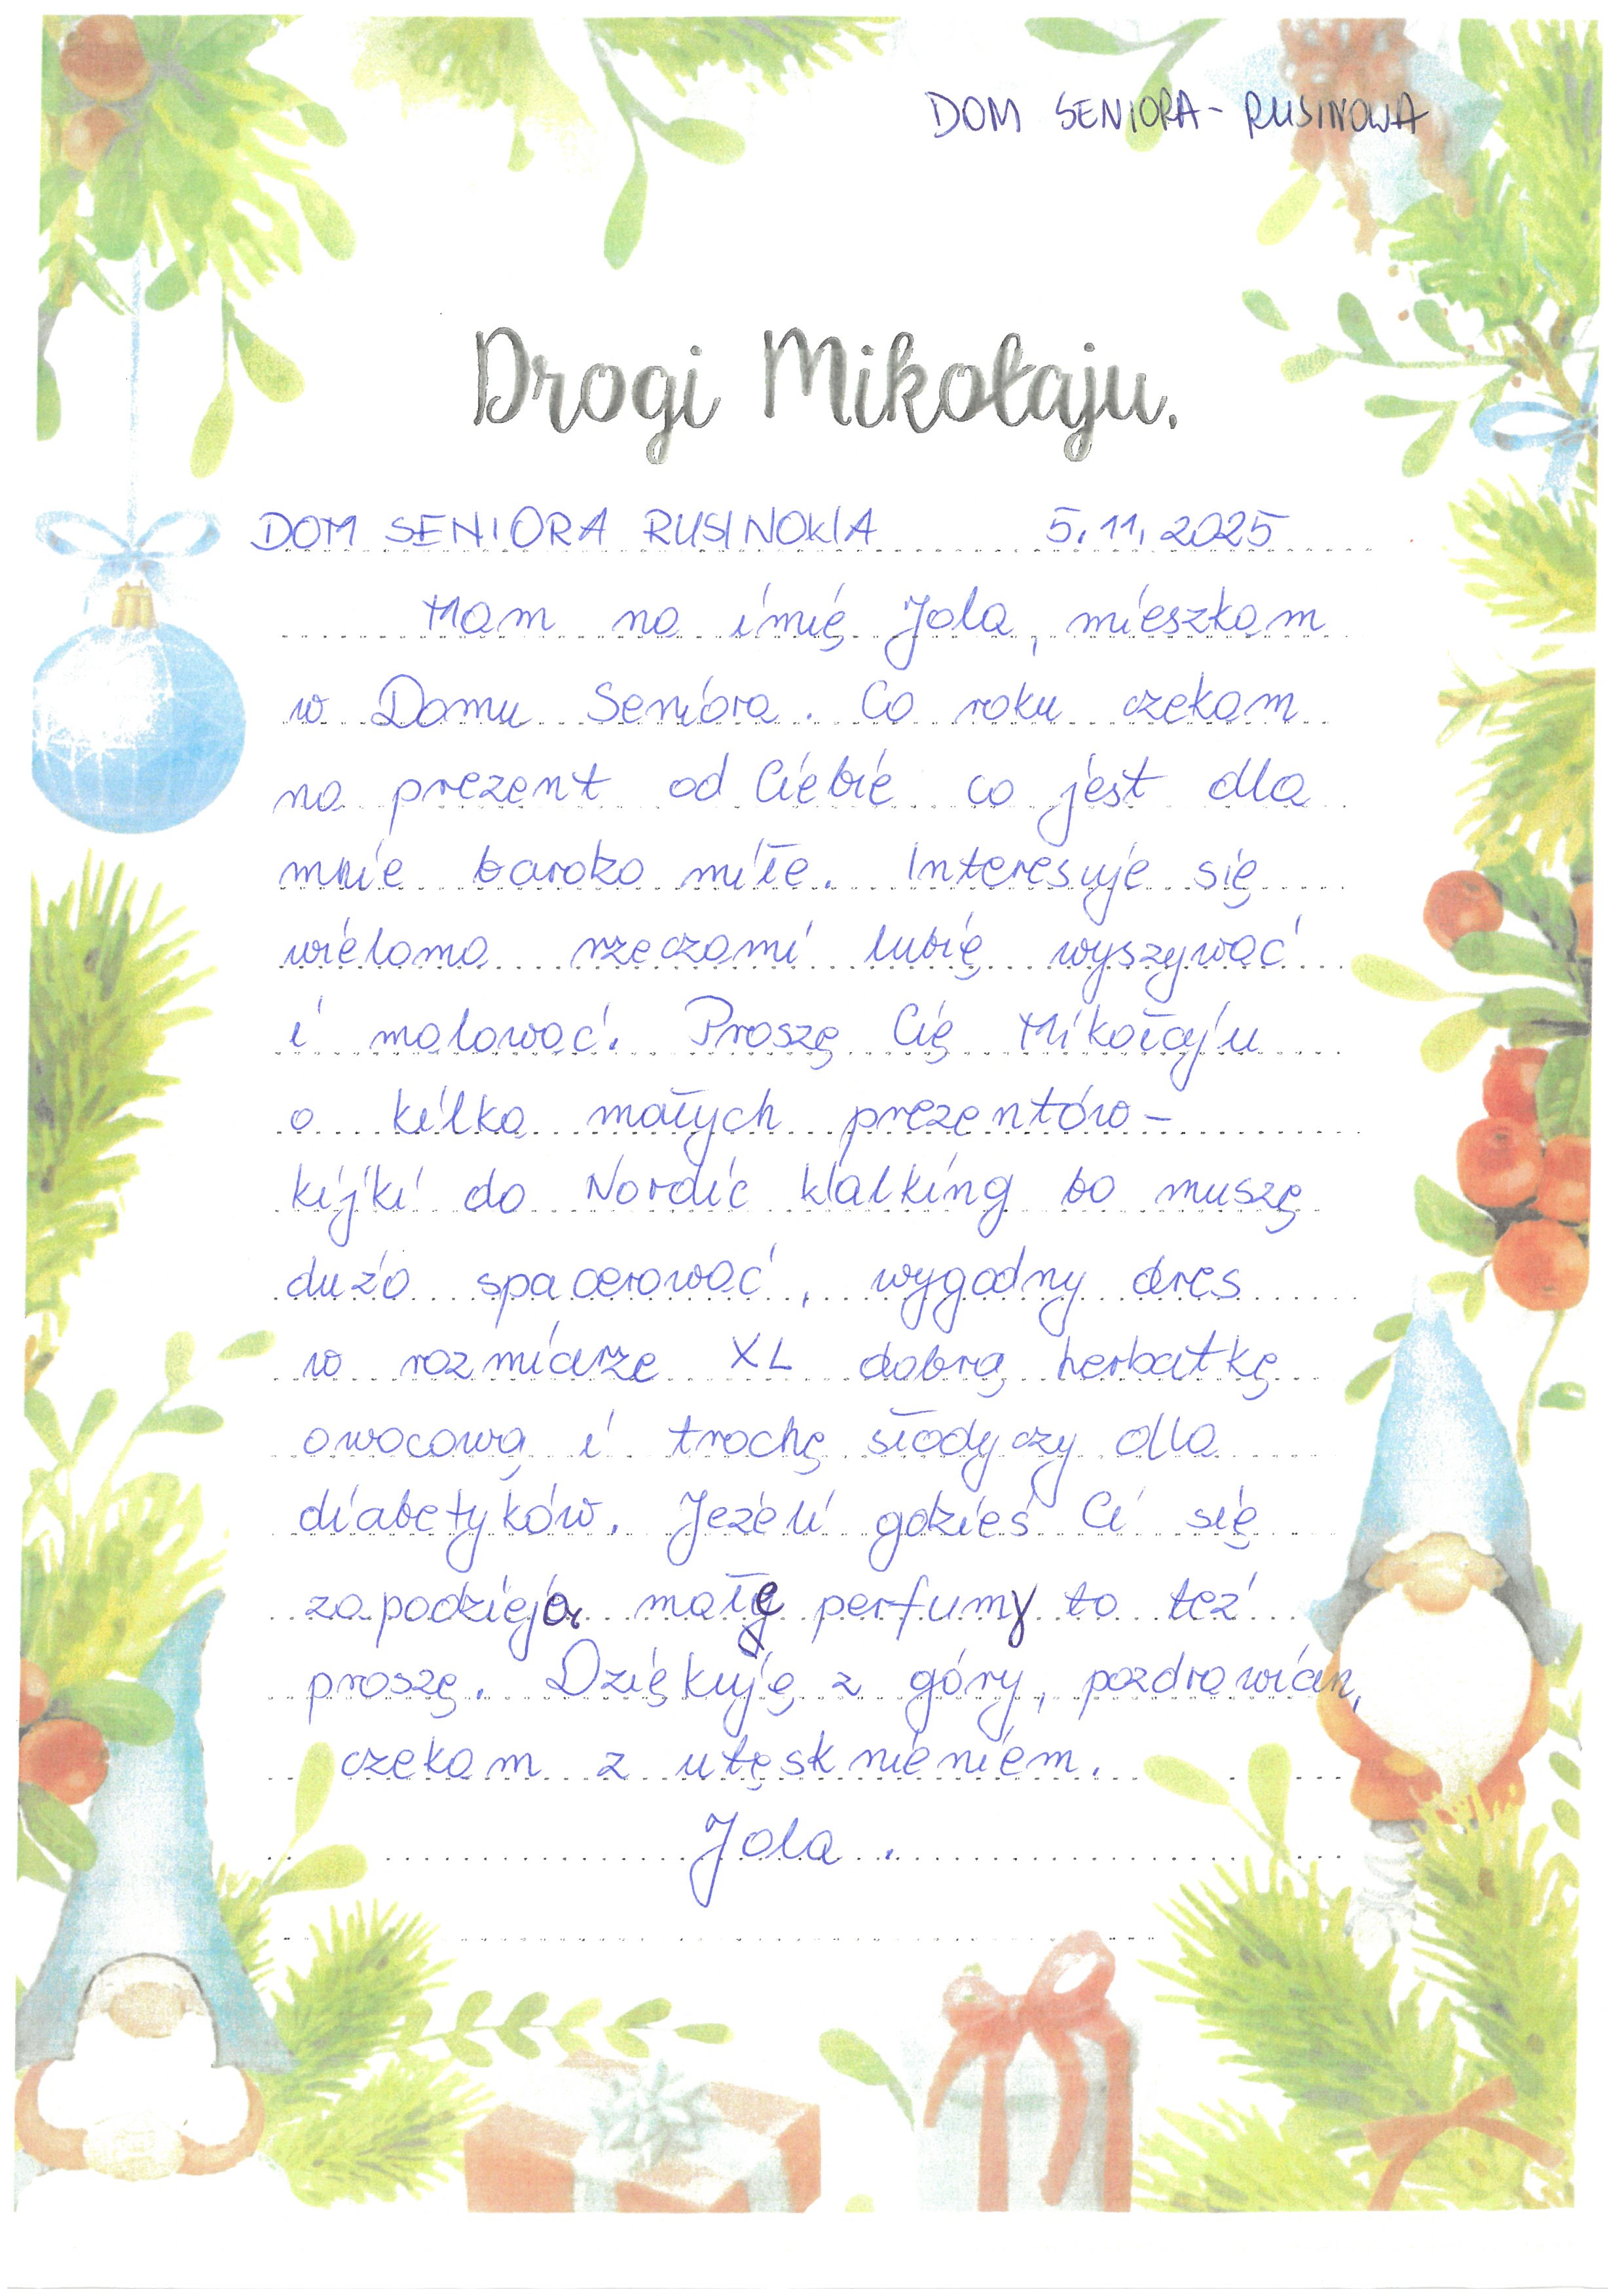 DOM SENIORA - RUSINOWA
Drogi Mikołaju,
DOM SENIORA RUSINOWA 5.11.2025
Mam na imię Jola, mieszkam
w Domu Seniora. Co roku czekam
na prezent od Ciebie co jest dla
mnie bardzo miłe. Interesuje się
wieloma rzeczami lubię wyszywać
i malować. Proszę Cię Mikołaju
o kilka małych prezentów -
kijki do Nordic Walking bo muszę
dużo spacerować, wygodny dres
w rozmiarze XL dobrą herbatkę
owocową i trochę słodyczy dla
diabetyków. Jeżeli gdzieś Ci się
zapodzieją małę perfumy to też
proszę. Dziękuję z góry, pozdrawiam,
czekam z utęsknieniem.
Jola.